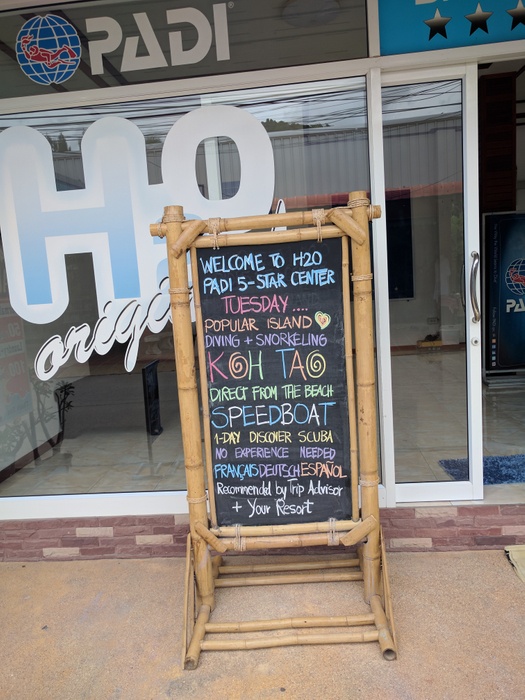 PADI
H2O
origi
WELCOME TO H2O
PADI 5-STAR CENTER
TUESDAY....
POPULAR ISLAND
DIVING + SNORKELING
KOH TAO
DIRECT FROM THE BEACH
SPEEDBOAT
1-DAY DISCOVER SCUBA
NO EXPERIENCE NEEDED
FRANÇAIS DEUTSCH ESPAÑOL
Recommended by Trip Advisor
+ Your Resort
PA